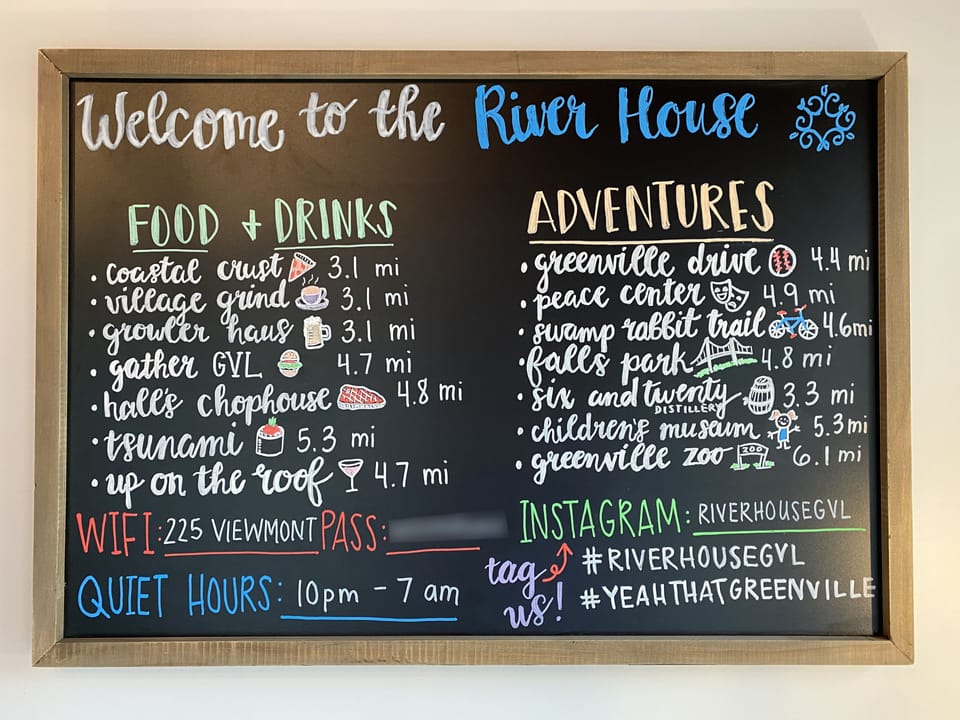 Welcome to the River House
FOOD + DRINKS
• coastal crust 3.1 mi
• village grind 3.1 mi
• growler haus 3.1 mi
• gather GVL 4.7 mi
• hall's chophouse 4.8 mi
• tsunami 5.3 mi
• up on the roof 4.7 mi
WIFI: 225 VIEWMONT PASS:
QUIET HOURS: 10pm - 7 am
ADVENTURES
• greenville drive 4.4 mi
• peace center 4.9 mi
• swamp rabbit trail 4.6mi
• falls park 4.8 mi
• six and twenty DISTILLERY 3.3 mi
• children's museum 5.3mi
• greenville zoo ZOO 6.1 mi
INSTAGRAM: RIVERHOUSEGVL
tag us!
#RIVERHOUSEGVL
#YEAHTHATGREENVILLE